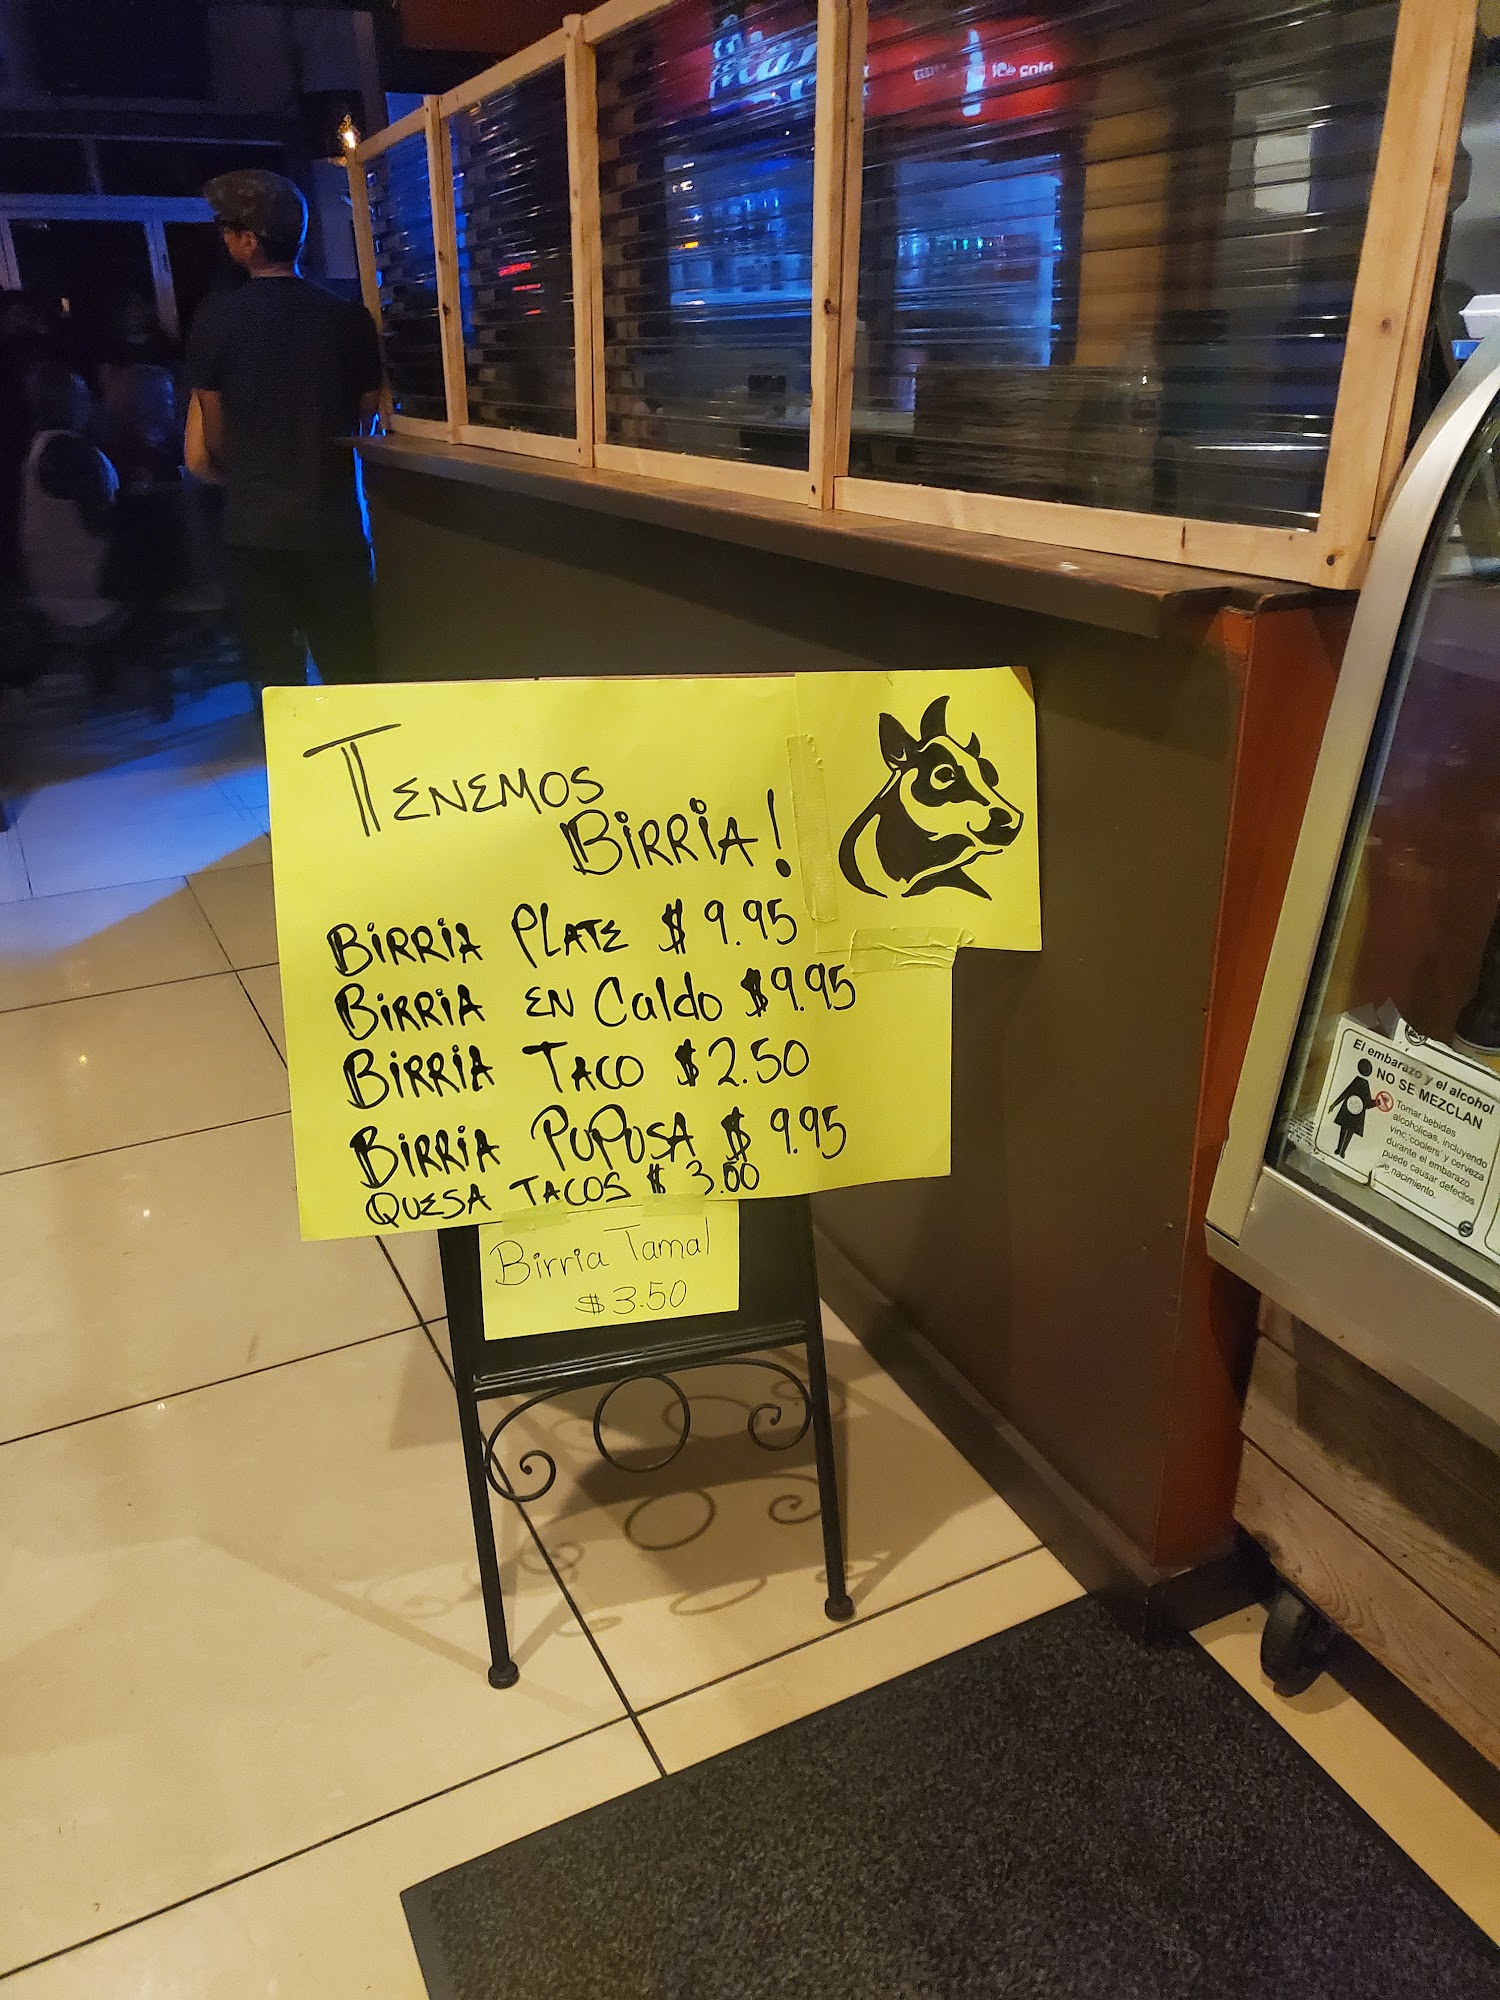 TENEMOS
BIRRIA!
BIRRIA PLATE $ 9.95
BIRRIA EN Caldo $9.95
BIRRIA TACO $2.50
BIRRIA PUPUSA $ 9.95
QUESA TACOS $ 3.00
Birria Tamal
$3.50
ice cold
El embarazo y el alcohol
NO SE MEZCLAN
Tomar bebidas
alcohólicas, incluyendo
vino, coolers y cerveza
durante el embarazo
puede causar defectos
de nacimiento.